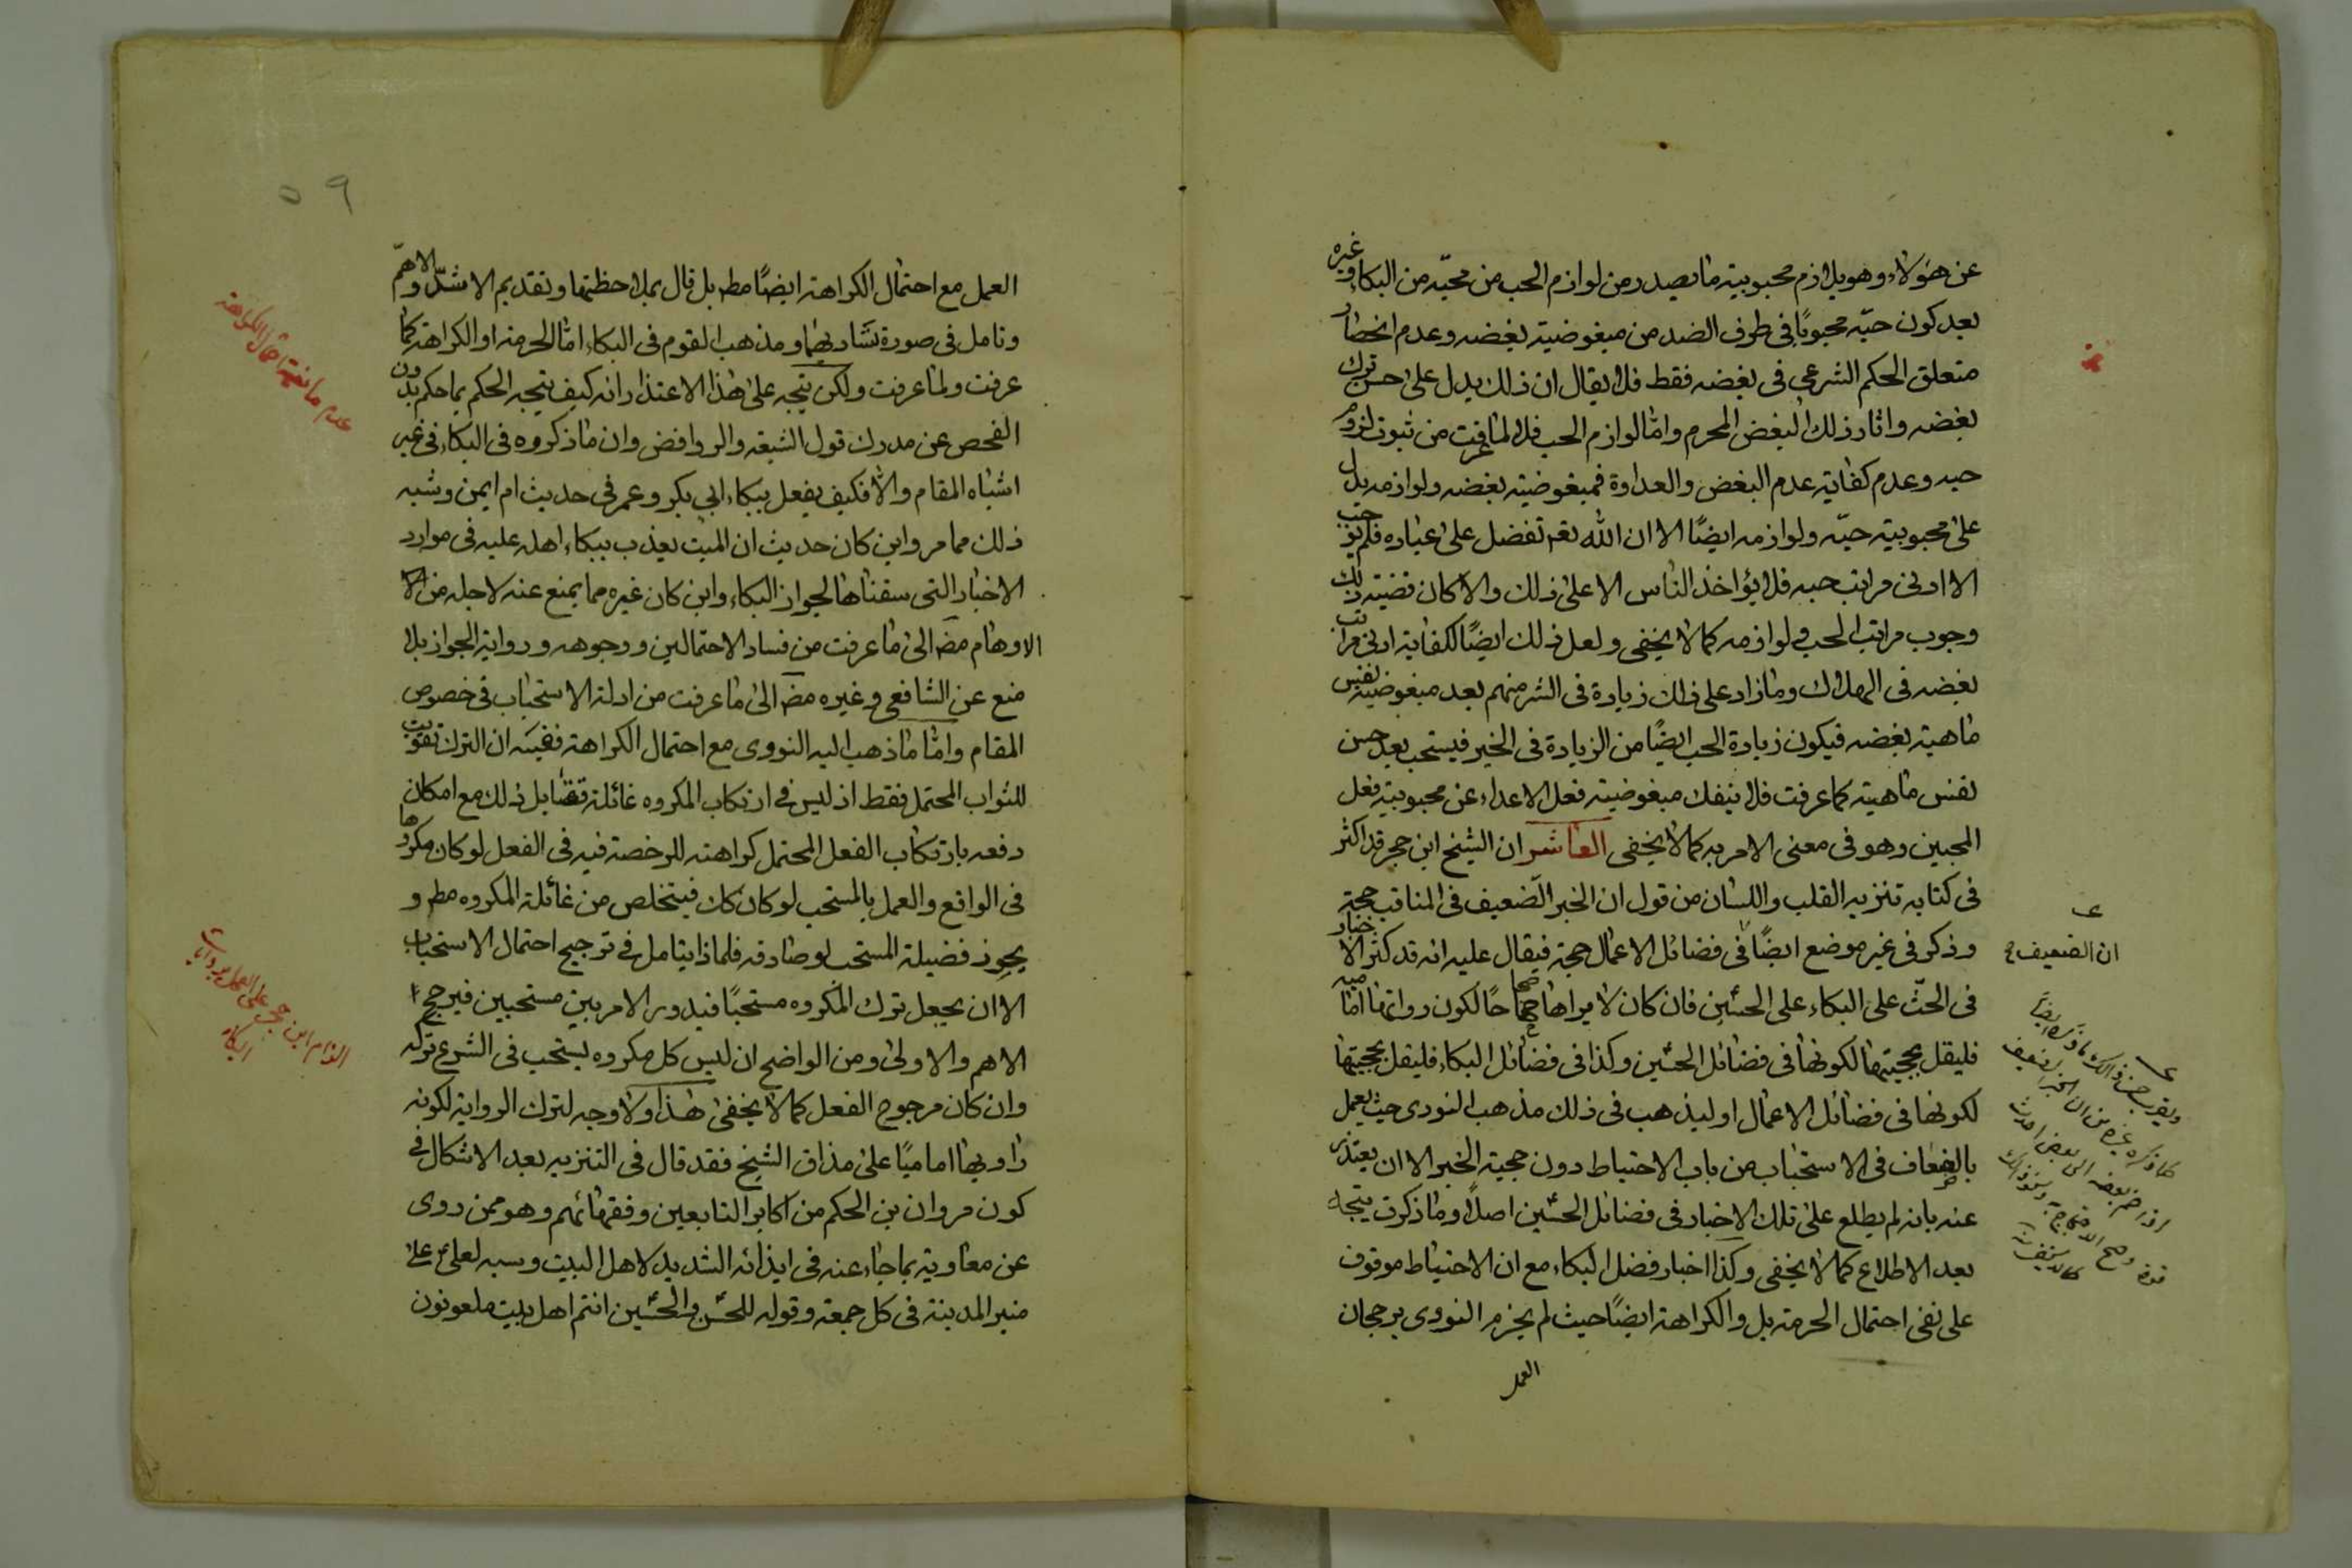 عن هؤلاء وهو يلازم محبوبية ما يصدر من لوازم الحب من محبّيه من البكاء وغيره
بعد كون حبّه محبوبًا فى طرف الضد من مبغوضية بغضه وعدم انحصار
متعلق الحكم الشرعى فى بغضه فقط فلا يقال ان ذلك يدل على حسن ترك
بغضه واثار ذلك البغض المحرم وامّا لوازم الحب فلا لما عرفت من ثبوت لزوم
حبه وعدم كفاية عدم البغض والعداوة فمبغوضية بغضه ولوازمه يدل
على محبوبية حبّه ولوازمه ايضًا الا ان الله تعم تفضل على عباده فلم يوجب
الا ادنى مراتب حبه فلا يؤاخذ الناس الا على ذلك والا كان قضية ذلك
وجوب مراتب الحب ولوازمه كما لا يخفى ولعل ذلك ايضًا لكفاية ادنى مراتب
بغضه فى الهلاك وما زاد على ذلك زيادة فى الشر منهم بعد مبغوضية نفس
ماهية بغضه فيكون زيادة الحب ايضًا من الزيادة فى الخير فيستحب بعد حسن
نفس ماهيته كما عرفت فلا ينفك مبغوضية فعل الاعداء عن محبوبية فعل
المحبين وهو فى معنى الامر به كما لا يخفى العاشر ان الشيخ ابن حجر قد اكثر
فى كتابه تنزيه القلب واللسان من قول ان الخبر الضعيف فى المناقب حجة
وذكر فى غير موضع ايضًا فى فضائل الاعمال حجة فيقال عليه انه قد كثر الاخبار
فى الحثّ على البكاء على الحسين فان كان لا يراها صحاحًا لكون رواتها امامية
فليقل بحجيتها لكونها فى فضائل الحسين وكذا فى فضائل البكاء فليقل بحجيتها
لكونها فى فضائل الاعمال او ليذهب فى ذلك مذهب النووى حيث يعمل
بالضعاف فى الاستحباب من باب الاحتياط دون حجية الخبر الا ان يعتذر
عنه بانه لم يطلع على تلك الاخبار فى فضائل الحسين اصلًا وما ذكرت يتجه
بعد الاطلاع كما لا يخفى وكذا اخبار فضل البكاء مع ان الاحتياط موقوف
على نفى احتمال الحرمة بل والكراهة ايضًا حيث لم يجزم النووى برجحان
العمل
ان الضعيف
٥٩
العمل مع احتمال الكراهة ايضًا مطم بل قال بملاحظتها وتقديم الاشدّ والاهمّ
وتامل فى صورة تساويهما ومذهب القوم فى البكاء امّا الحرمة او الكراهة كما
عرفت ولما عرفت ولكن يتجه على هذا الاعتذار انه كيف يتجه الحكم بما حكم بدون
الفحص عن مدرك قول الشيعة والروافض وان ما ذكروه فى البكاء فى غير
اشباه المقام والا فكيف يفعل ببكاء ابى بكر وعمر فى حديث ام ايمن وشبه
ذلك مما مر واين كان حديث ان الميت يعذب ببكاء اهله عليه فى موارد
الاخبار التى سقناها لجواز البكاء واين كان غيره مما يمنع عنه لاجله من
الاوهام مضم الى ما عرفت من فساد الاحتمالين ووجوهه ورواية الجواز بلا
منع عن الشافعى وغيره مضم الى ما عرفت من ادلة الاستحباب فى خصوص
المقام وامّا ما ذهب اليه النووى مع احتمال الكراهة ففيه ان الترك تفويت
للثواب المحتمل فقط اذ ليس فى ارتكاب المكروه غائلة تقابل ذلك مع امكان
دفعه بارتكاب الفعل المحتمل كراهته للرخصة فيه فى الفعل لو كان مكروها
فى الواقع والعمل بالمستحب لو كان كك فيتخلص من غائلة المكروه مطم و
يحوز فضيلة المستحب لو صادفه فلماذا يتامل فى ترجيح احتمال الاستحباب
الا ان يجعل ترك المكروه مستحبًا فيدور الامر بين مستحبين فيرجح
الاهم والاولى ومن الواضح ان ليس كل مكروه يستحب فى الشرع تركه
وان كان مرجوح الفعل كما لا يخفى هذا ولا وجه لترك الرواية لكونه
راويها اماميًا على مذاق الشيخ فقد قال فى التنزيه بعد الاشكال فى
كون مروان بن الحكم من اكابر التابعين وفقهائهم وهو ممن روى
عن معاوية بما جاء عنه فى ايذائه الشديد لاهل البيت وسبه لعلى على
منبر المدينة فى كل جمعة وقوله للحسن والحسين انتم اهل بيت ملعونون
عدم مانعية احتمال الكراهة
الزام ابن حجر على العمل بروايات
البكاء